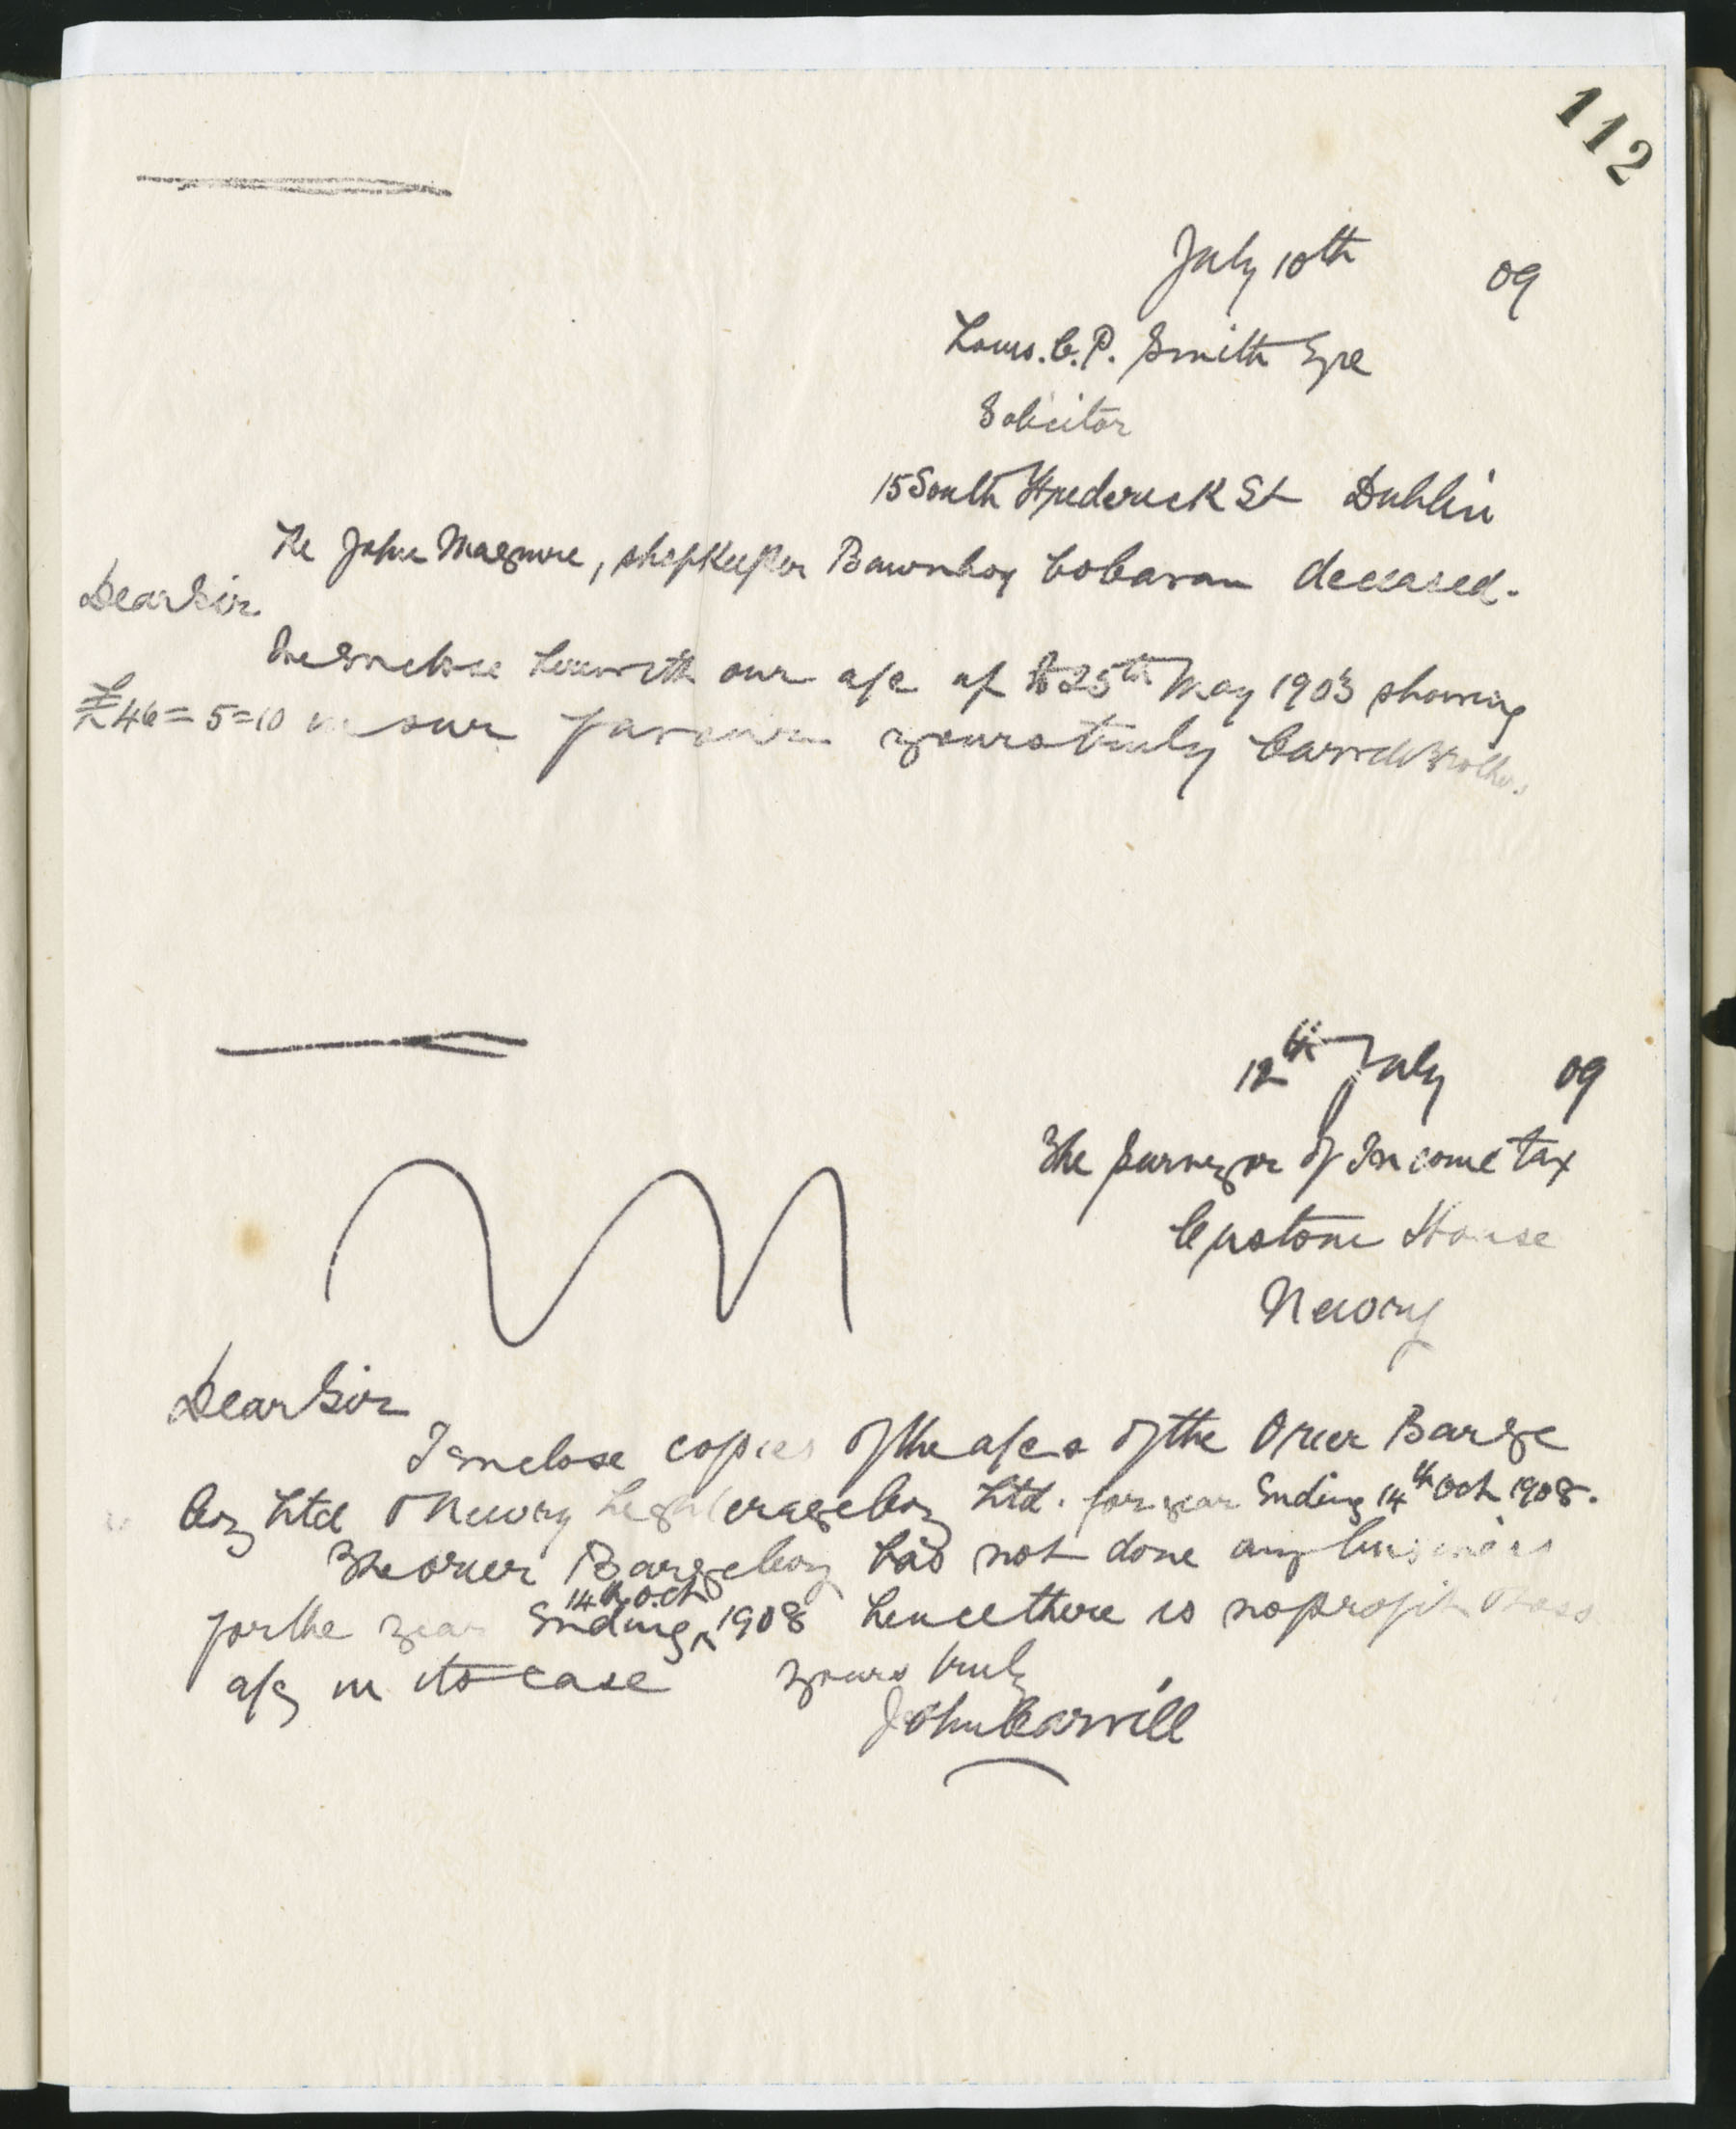 112
July 10th 09
Louis. C. P. Smith Esqre
Solicitor
15 South Frederick St Dublin
Re John Maguire, shopkeeper Bawnboy Co Cavan deceased.
Dear Sir
We enclose herewith our a/c up to 25th May 1903 showing
£46=5=10 in our favour yours truly Carvill Brothers
12th July 09
The Surveyor of Income tax
Custom House
Newry
Dear Sir
I enclose copies of the a/cs of the Orier Barge
Coy Ltd & Newry Lighterage Coy Ltd. for year Ending 14th Oct 1908.
The orier Barge Coy has not done any business
14th Oct
for the year Ending 1908 hence there is no profit & loss
a/c in its case yours truly
John Carvill